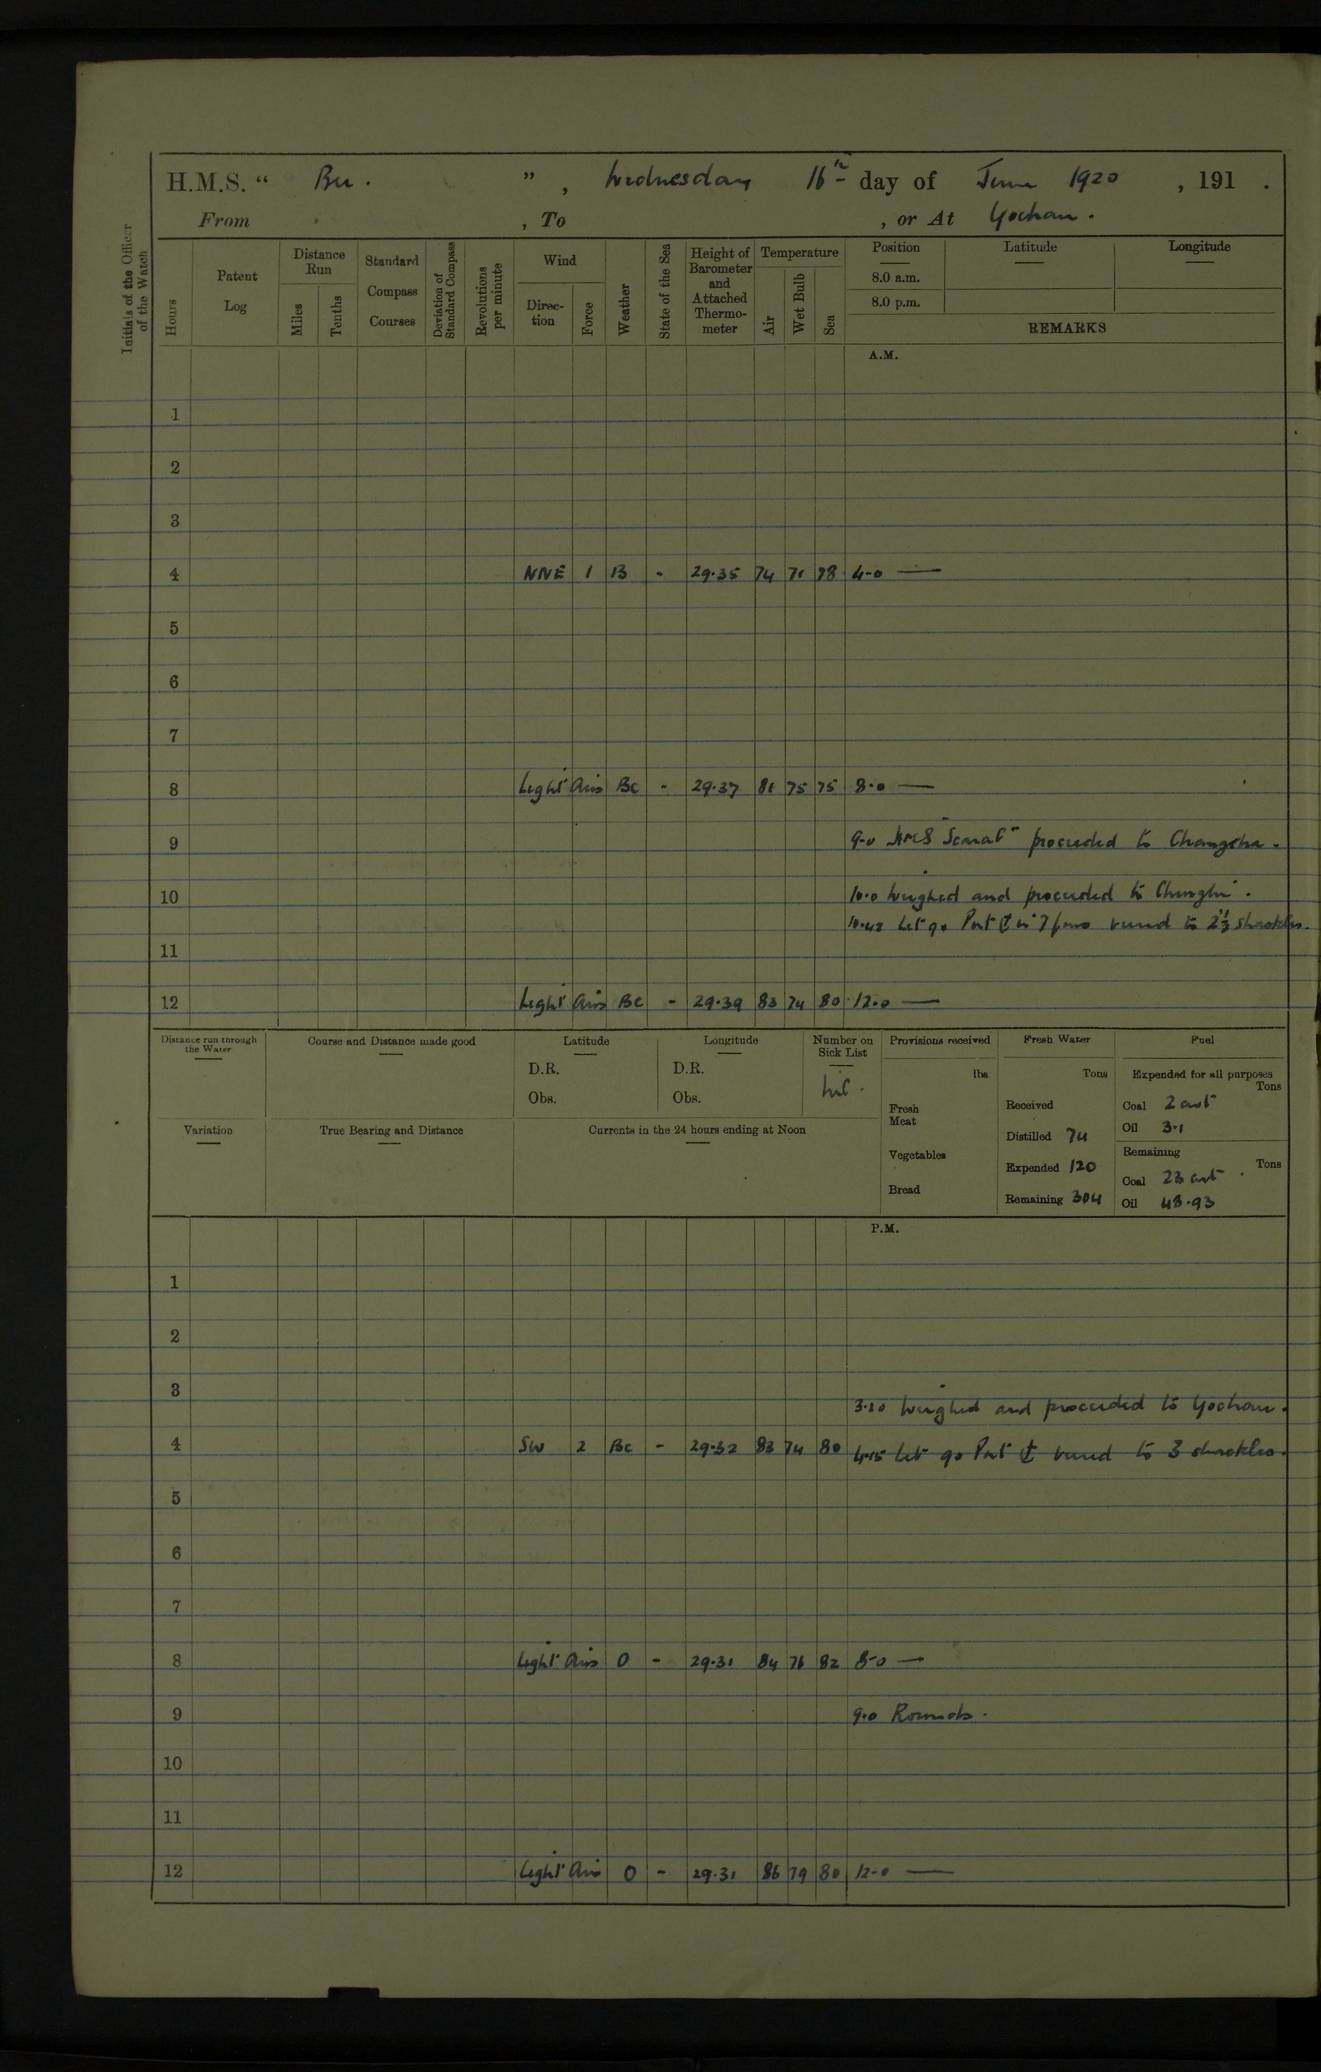 H.M.S. “ Bee . ” , Wednesday 16th day of June 1920 , 191 .
From , To , or At Yochow .
Initials of the Officer of the Watch
Hours
Patent Log
Distance Run
Miles
Tenths
Standard Compass Courses
Deviation of Standard Compass
Revolutions per minute
Wind
Direc- tion
Force
Weather
State of the Sea
Height of Barometer and Attached Thermo- meter
Temperature
Air
Wet Bulb
Sea
Position Latitude Longitude
8.0 a.m.
8.0 p.m.
REMARKS
A.M.
1
2
3
4 NNE 1 B - 29.35 74 71 78 4-0 —
5
6
7
8 Light Airs Bc - 29.37 81 75 75 8.0 —
9 9-0 HMS "Scarab" proceeded to Changsha .
10 10.0 Weighed and proceeded to Chinglin .
10.42 Let go Port ⚓ in 7 fms veered to 2½ shackles.
11
12 Light Airs Bc - 29.39 83 74 80 12.0 —
Distance run through the Water
Course and Distance made good
Latitude
D.R.
Obs.
Longitude
D.R.
Obs.
Number on Sick List
nil .
Variation
True Bearing and Distance
Currents in the 24 hours ending at Noon
Provisions received
lbs.
Fresh Meat
Vegetables
Bread
Fresh Water
Tons
Received
Distilled 74
Expended 120
Remaining 304
Fuel
Expended for all purposes
Tons
Coal 2 cwt
Oil 3.1
Remaining
Tons
Coal 23 cwt .
Oil 48.93
P.M.
1
2
3 3.20 Weighed and proceeded to Yochow .
4 SW 2 Bc - 29.32 83 74 80 4.15 Let go Port ⚓ veered to 3 shackles .
5
6
7
8 Light Airs O - 29.31 84 76 82 8-0 —
9 9.0 Rounds .
10
11
12 Light Airs O - 29.31 86 79 80 12-0 —